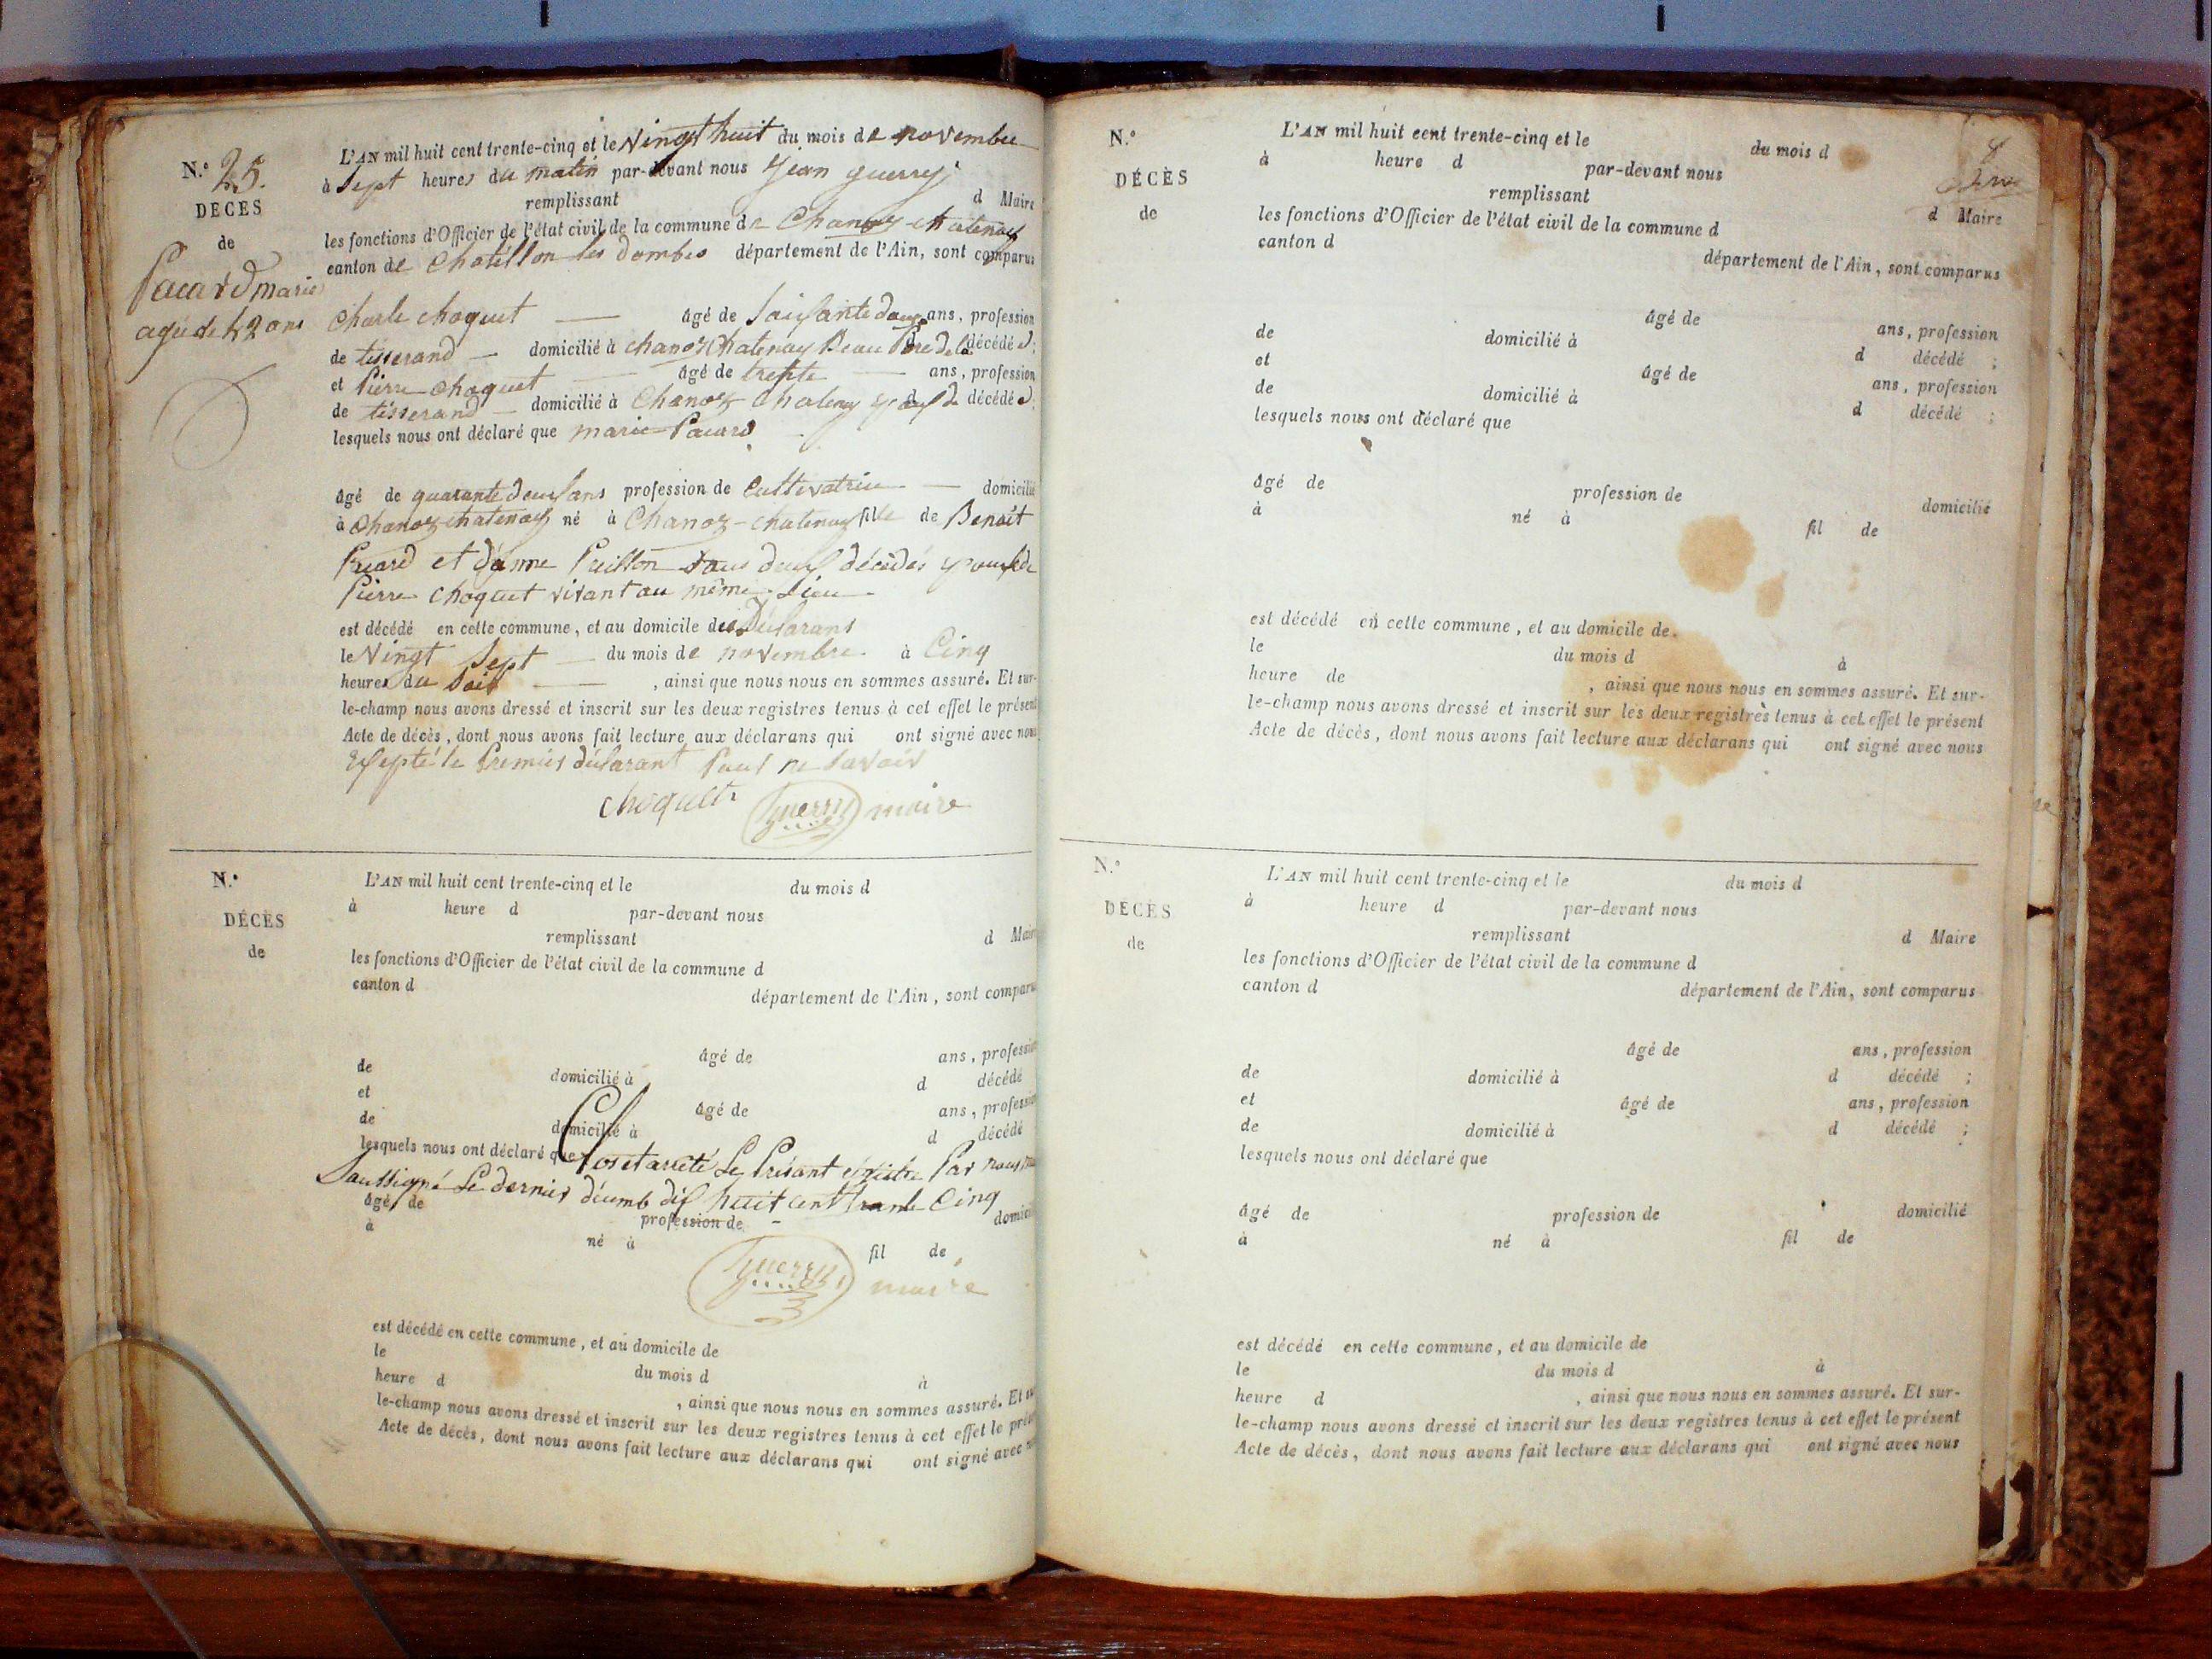 N.º 25.
DÉCÈS
de
Pacard marie
agée de 42 ans
L'AN mil huit cent trente-cinq et le Vingt huit du mois de novembre
à Sept heures du matin par-devant nous Jean guerry
remplissant d Maire
les fonctions d'Officier de l'état civil de la commune de Chanoz-chatenay
canton de Chatillon les dombes département de l'Ain, sont comparus
Charle choquet — âgé de Soissante ans, profession
de tisserand — domicilié à chanoz chatenay Beau Pere de la décédée;
et Pierre choquet — âgé de trente — ans, profession
de tisserand — domicilié à Chanoz Chatenay décédée;
lesquels nous ont déclaré que marie Pacard
âgé de quarante deux ans profession de Cultivatrice — domicilié
à Chanoz chatenay né à Chanoz-chatenay fille de Benoît
Pacard et d'anne Puillon tous deux décédés epouse de
Pierre choquet vivant au même Lieu
est décédé en cette commune, et au domicile des Déclarans
le Vingt Sept — du mois de novembre à Cinq
heures du Soir — , ainsi que nous nous en sommes assuré. Et sur-
le-champ nous avons dressé et inscrit sur les deux registres tenus à cet effet le présent
Acte de décès, dont nous avons fait lecture aux déclarans qui ont signé avec nous
Exepté le Premier déclarant Pour ne Savoir
choquet guerry maire
N.º
DÉCÈS
de
L'AN mil huit cent trente-cinq et le du mois d
à heure d par-devant nous
remplissant d Maire
les fonctions d'Officier de l'état civil de la commune d
canton d département de l'Ain, sont comparus
âgé de ans, profession
de domicilié à d décédé
et âgé de ans, profession
de domicilié à d décédé
lesquels nous ont déclaré que
Clos et arreté Le Présant Par nous
Soussigné Le dernier décemb dix huit cent trente Cinq
âgé de profession de domicilié
à né à fil de
guerry maire
est décédé en cette commune, et au domicile de
le du mois d à
heure d , ainsi que nous nous en sommes assuré. Et sur-
le-champ nous avons dressé et inscrit sur les deux registres tenus à cet effet le présent
Acte de décès, dont nous avons fait lecture aux déclarans qui ont signé avec nous
8
N.º
DÉCÈS
de
L'AN mil huit cent trente-cinq et le du mois d
à heure d par-devant nous
remplissant d Maire
les fonctions d'Officier de l'état civil de la commune d
canton d département de l'Ain, sont comparus
âgé de ans, profession
de domicilié à d décédé ;
et âgé de ans, profession
de domicilié à d décédé ;
lesquels nous ont déclaré que
âgé de profession de domicilié
à né à fil de
est décédé en cette commune, et au domicile de
le du mois d à
heure de , ainsi que nous nous en sommes assuré. Et sur-
le-champ nous avons dressé et inscrit sur les deux registres tenus à cet effet le présent
Acte de décès, dont nous avons fait lecture aux déclarans qui ont signé avec nous
N.º
DÉCÈS
de
L'AN mil huit cent trente-cinq et le du mois d
à heure d par-devant nous
remplissant d Maire
les fonctions d'Officier de l'état civil de la commune d
canton d département de l'Ain, sont comparus
âgé de ans, profession
de domicilié à d décédé ;
et âgé de ans, profession
de domicilié à d décédé ;
lesquels nous ont déclaré que
âgé de profession de domicilié
à né à fil de
est décédé en cette commune, et au domicile de
le du mois d à
heure d , ainsi que nous nous en sommes assuré. Et sur-
le-champ nous avons dressé et inscrit sur les deux registres tenus à cet effet le présent
Acte de décès, dont nous avons fait lecture aux déclarans qui ont signé avec nous